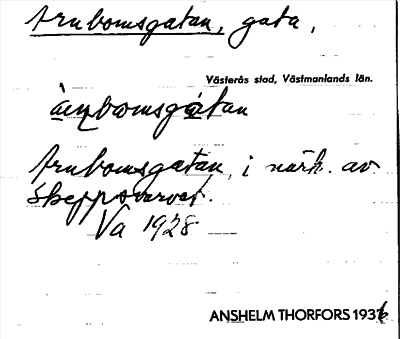 Arnbomsgatan, gata,
Västerås stad, Västmanlands län.
àrn̥bωmsgátan
Arnbomsgatan, i närh. av
Skeppsvarvet.
Va 1928
ANSHELM THORFORS 1936